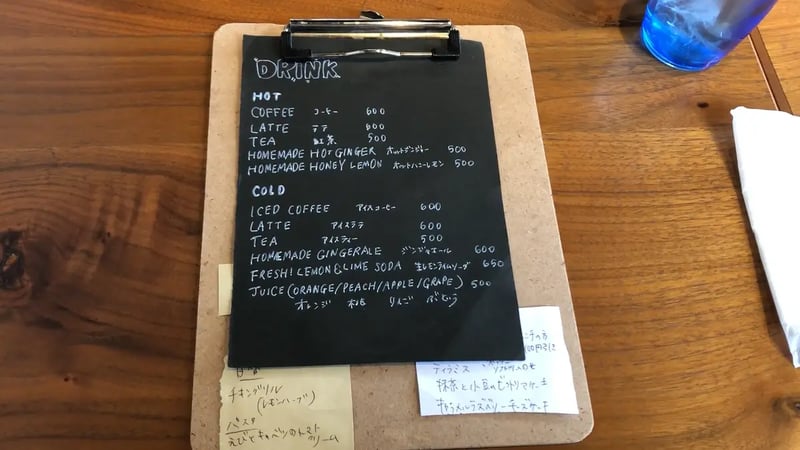 DRINK
HOT
COFFEE コーヒー 600
LATTE ラテ 600
TEA 紅茶 500
HOMEMADE HOT GINGER ホットジンジャー 500
HOMEMADE HONEY LEMON ホットハニーレモン 500
COLD
ICED COFFEE アイスコーヒー 600
LATTE アイスラテ 600
TEA アイスティー 500
HOMEMADE GINGERALE ジンジャエール 600
FRESH! LEMON&LIME SODA 生レモンライムソーダ 650
JUICE (ORANGE/PEACH/APPLE/GRAPE) 500
オレンジ 桃 りんご ぶどう
チキングリル
(レモンハーブ)
パスタ
えびとキャベツのトマト
クリーム
の方
100円引き
ティラミス
抹茶と小豆の
チーズケーキ